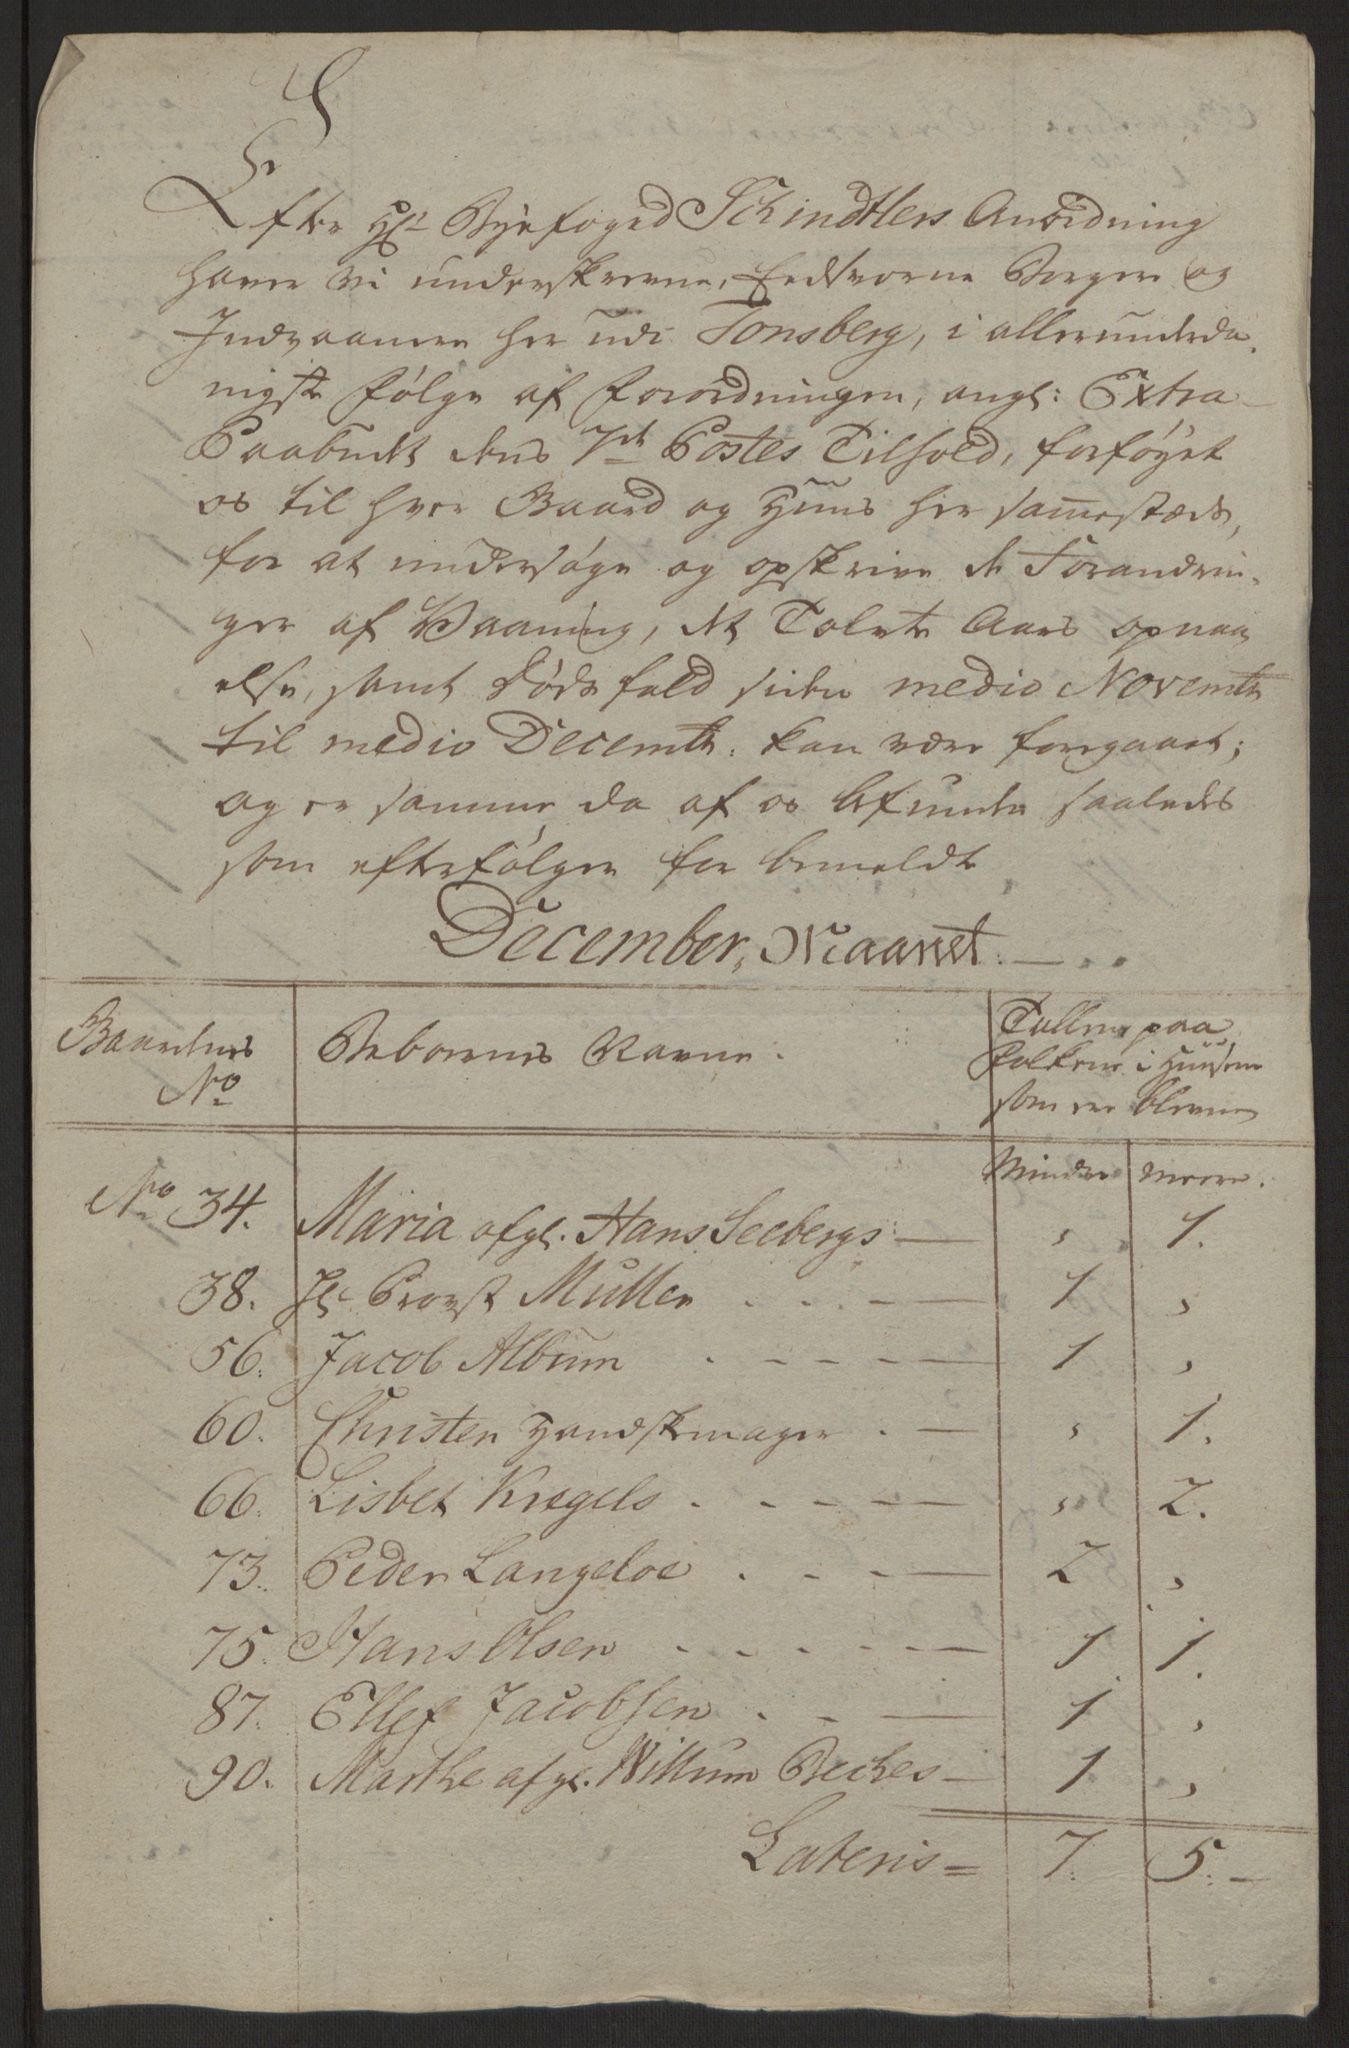 Efter Hr Byefoged Schindtlers Anordning
haver vi underskrevne, Eedsvorne Borgere og
Indvaanere her udi Tonsberg, i allerunderda-
nigste følge af Forordningen, angl: Extra-
Paabudt dens 7de Postes Tilhold, forføyet
os til hver Gaard og Huus her sammestæds,
for at undersøge og opskrive de Forandrin-
ger af Vaaning, et Tolvte Aars opnaa
else, samt Dødsfald siden medio Novembr
til medio Decembr: kan være foregaaet;
og er samme da af os befunden saaledes
som efterfølger for bemeldte
December, Maanet.
Gaardenes No | Beboernes Navne. | Tallene paa
Folkene i Huusene
som ere blevne
Mindre | meere.
No 34. Maria afgl. Hans Seebergs — " 1.
38. Hr Provst Muller . . . — 1 "
56. Jacob Album . - - - — 1 "
60. Christen Handskemager . — " 1.
66. Lisbet Kregels . - - - — " 2.
73. Peder Langeloe . - - — 2 "
75. Hans Olsen . - - - — 1 1.
87. Ellef Jacobsen . - — 1 "
90. Marthe afgl. Willum Beckes — 1 "
Lateris = 7. 5. -